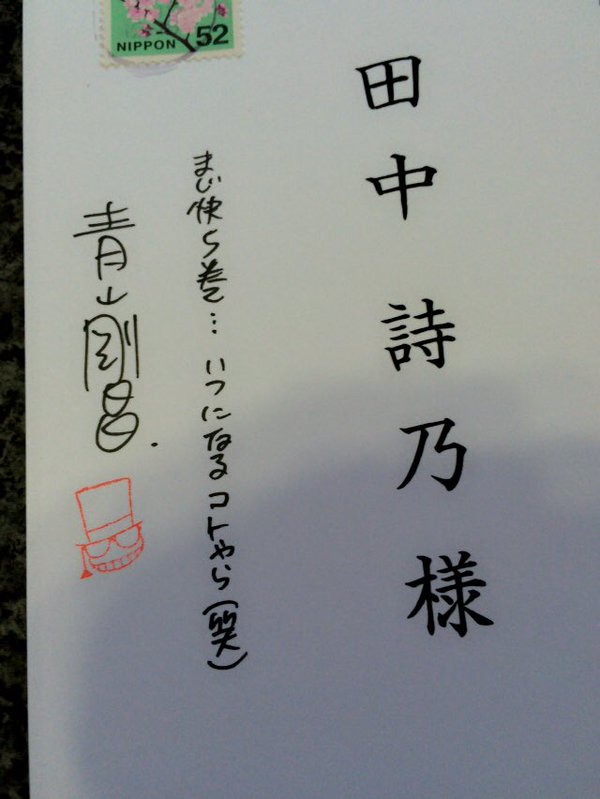 NIPPON 52
田中 詩乃 様
まじ快5巻…いつになるコトやら(笑)
青山剛昌.